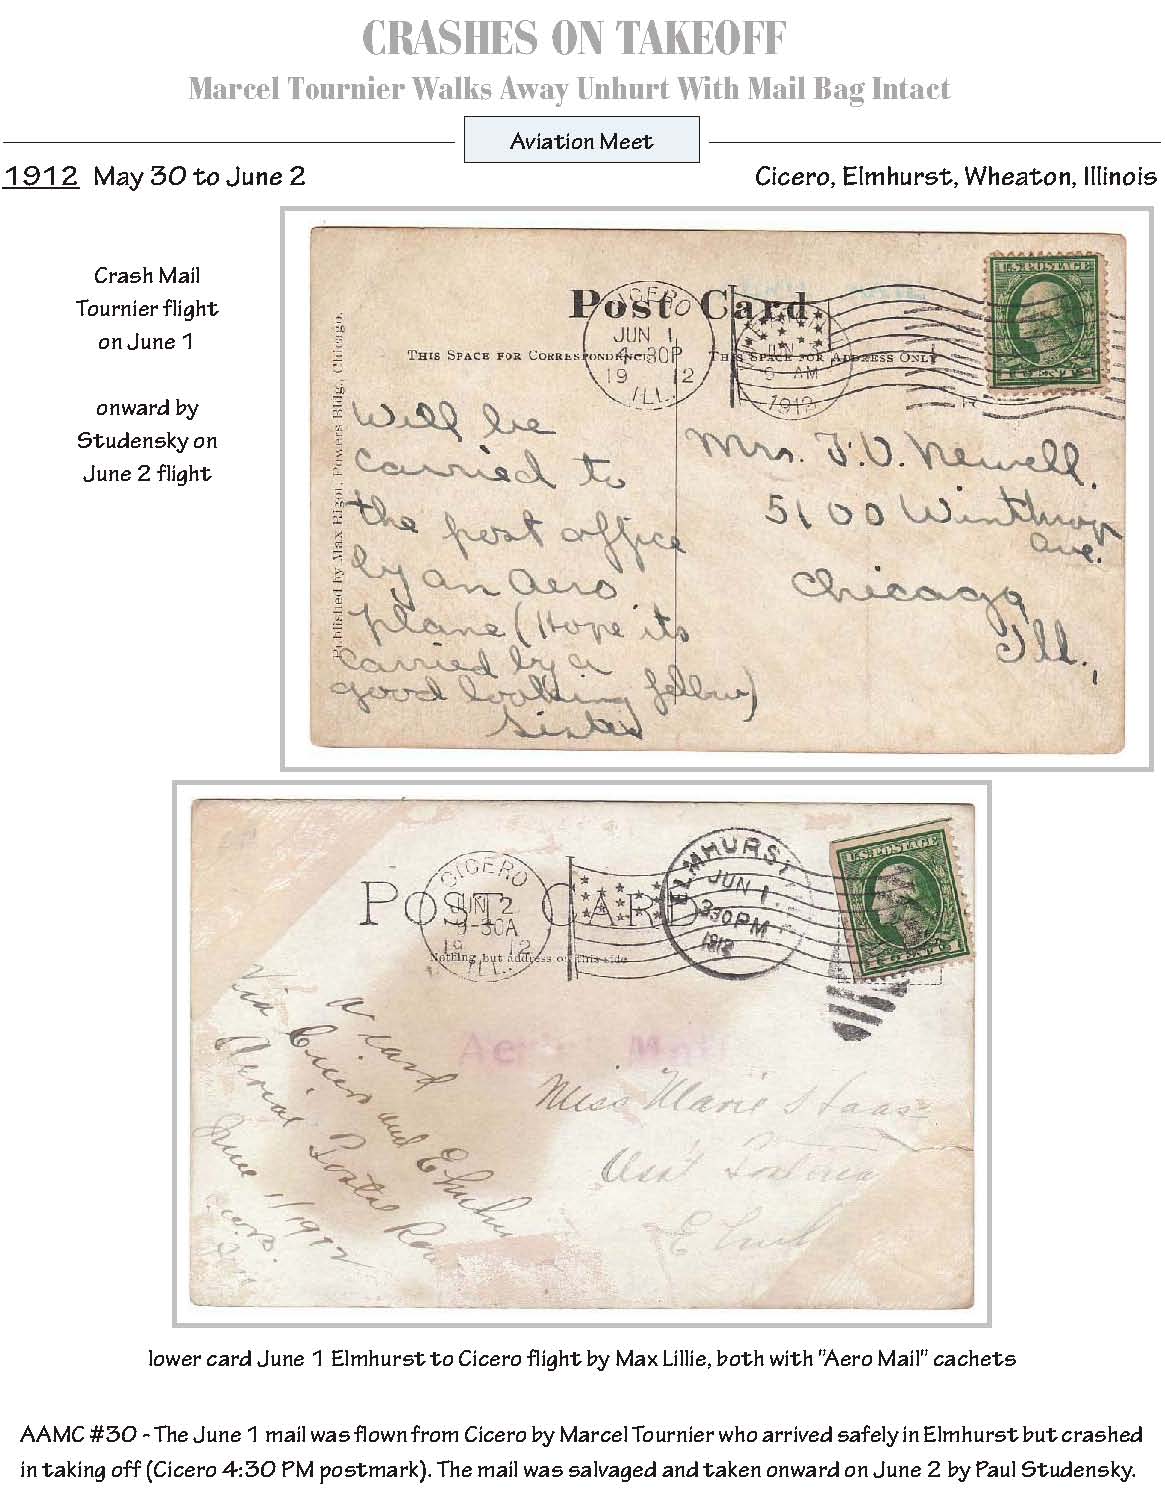 CRASHES ON TAKEOFF
Marcel Tournier Walks Away Unhurt With Mail Bag Intact
Aviation Meet
1912 May 30 to June 2
Cicero, Elmhurst, Wheaton, Illinois
Crash Mail
Tournier flight
on June 1
onward by
Studensky on
June 2 flight
Post Card
THIS SPACE FOR CORRESPONDENCE
THIS SPACE FOR ADDRESS ONLY
CICERO
JUN 1
4-30P
19 12
ILL.
AM
1912
U.S. POSTAGE
Published by Max Rigot, Powers Bldg., Chicago.
Will be
carried to
the post office
by an Aero
plane (Hope its
carried by a
good looking fellow)
Sister
Mrs. F.V. Newell.
5100 Winthrop
ave.
Chicago
Ill.,
POST CARD
Nothing but address on this side
CICERO
JUN 2
9-30A
19 12
ILL.
ELMHURST
JUN 1
330PM
1912
U.S. POSTAGE
Aero Mail
A card
Via Cicero and
Aerial Postal
June 1/1912
Miss Marie Haas
Ass't
lower card June 1 Elmhurst to Cicero flight by Max Lillie, both with "Aero Mail" cachets
AAMC #30 - The June 1 mail was flown from Cicero by Marcel Tournier who arrived safely in Elmhurst but crashed
in taking off (Cicero 4:30 PM postmark). The mail was salvaged and taken onward on June 2 by Paul Studensky.